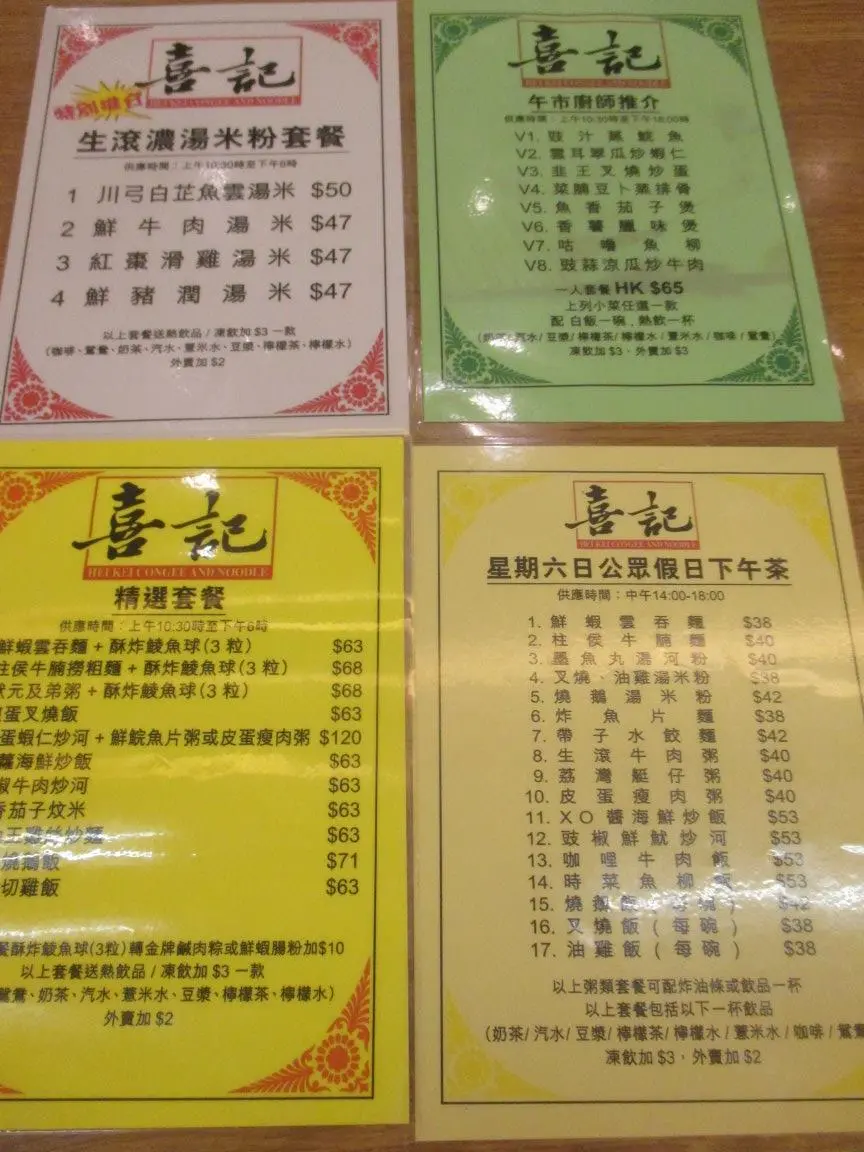 喜記
HEI KEI CONGEE AND NOODLE
特別推介
生滾濃湯米粉套餐
供應時間：上午10:30時至下午6時
1 川弓白芷魚雲湯米 $50
2 鮮牛肉湯米 $47
3 紅棗滑雞湯米 $47
4 鮮豬潤湯米 $47
以上套餐送熱飲品 / 凍飲加 $3 一款
(咖啡、鴛鴦、奶茶、汽水、薏米水、豆漿、檸檬茶、檸檬水)
外賣加 $2
喜記
HEI KEI CONGEE AND NOODLE
午市廚師推介
供應時間：上午10:30時至下午18:00時
V1. 豉汁蒸鯇魚
V2. 雲耳翠瓜炒蝦仁
V3. 韭王叉燒炒蛋
V4. 菜脯豆卜蒸排骨
V5. 魚香茄子煲
V6. 香薯臘味煲
V7. 咕嚕魚柳
V8. 豉蒜涼瓜炒牛肉
一人套餐 HK $65
上列小菜任選一款
配 白飯一碗，熱飲一杯
(奶茶/ 汽水/ 豆漿/ 檸檬茶/ 檸檬水 / 薏米水 / 咖啡 / 鴛鴦)
凍飲加 $3、外賣加 $3
喜記
HEI KEI CONGEE AND NOODLE
精選套餐
供應時間：上午10:30時至下午6時
鮮蝦雲吞麵 + 酥炸鯪魚球(3 粒) $63
柱侯牛腩撈粗麵 + 酥炸鯪魚球(3 粒) $68
狀元及弟粥 + 酥炸鯪魚球(3 粒) $68
蛋叉燒飯 $63
蛋蝦仁炒河 + 鮮鯇魚片粥或皮蛋瘦肉粥 $120
海鮮炒飯 $63
椒牛肉炒河 $63
香茄子炆米 $63
王雞絲炒麵 $63
燒鵝飯 $71
切雞飯 $63
餐酥炸鯪魚球(3粒)轉金牌鹹肉粽或鮮蝦腸粉加$10
以上套餐送熱飲品 / 凍飲加 $3 一款
鴛鴦、奶茶、汽水、薏米水、豆漿、檸檬茶、檸檬水)
外賣加 $2
喜記
HEI KEI CONGEE AND NOODLE
星期六日公眾假日下午茶
供應時間：中午14:00-18:00
1. 鮮蝦雲吞麵 $38
2. 柱侯牛腩麵 $40
3. 墨魚丸湯河粉 $40
4. 叉燒、油雞湯米粉 $38
5. 燒鵝湯米粉 $42
6. 炸魚片麵 $38
7. 帶子水餃麵 $42
8. 生滾牛肉粥 $40
9. 荔灣艇仔粥 $40
10. 皮蛋瘦肉粥 $40
11. XO醬海鮮炒飯 $53
12. 豉椒鮮魷炒河 $53
13. 咖哩牛肉飯 $53
14. 時菜魚柳飯 $53
15. 燒鵝飯(每碗) $42
16. 叉燒飯(每碗) $38
17. 油雞飯(每碗) $38
以上粥類套餐可配炸油條或飲品一杯
以上套餐包括以下一杯飲品
(奶茶/ 汽水/ 豆漿/ 檸檬茶/ 檸檬水 / 薏米水 / 咖啡 / 鴛鴦
凍飲加 $3，外賣加 $2